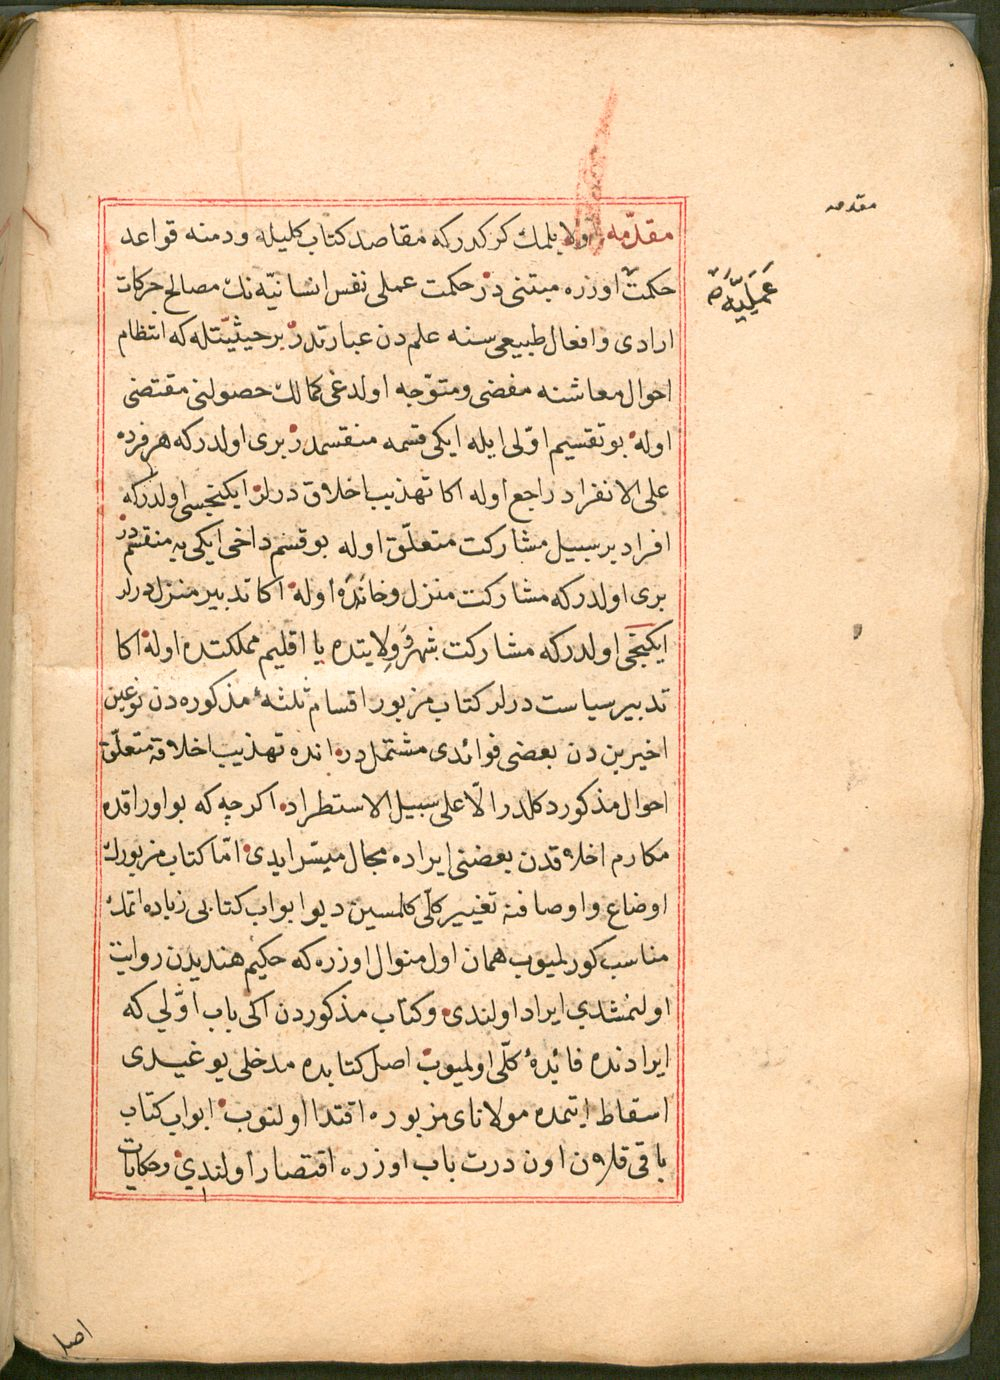 مقدمه
مقدّمه اولا بلمك كركدركه مقاصد كتاب كليله ودمنه قواعد
حكمت اوزره مبتنى در حكمت عملى نفس انسانيّه نك مصالح حركات
عَمَلِيَّه صح
ارادى وافعال طبيعى سنه علم دن عبارتدر بر حيثيّتله كه انتظام
احوال معاشنه مفضى ومتوّجه اولدغى كمالك حصولنى مقتضى
اوله بو تقسيم اوّلى ايله ايكى قسمه منقسمدر برى اولدركه هر فرده
على الانفراد راجع اوله اكا تهذيب اخلاق درلر ايكنجسى اولدركه
افراد بر سبيل مشاركت متعلّق اوله بو قسم داخى ايكى يه منقسم در
برى اولدركه مشاركت منزل وخانه‌ده اوله اكا تدبير منزل درلر
ايكنجى اولدركه مشاركت شهر وولايتده يا اقليم مملكتده اوله اكا
تدبير سياست درلر كتاب مزبور اقسام ثلثهٔ مذكوره دن نوعين
اخيرين دن بعضى فوائدى مشتمل در انده تهذيب اخلاقه متعلّق
احوال مذكور دكلدر الّا على سبيل الاستطراد اكرچه كه بو اوراقده
مكارم اخلاقدن بعضنى ايراده مجال ميسّر ايدى امّا كتاب مزبورك
اوضاع واوصافنه تغيير كلّى كلمسين ديو ابواب كتابى زياده اتمك
مناسب كورلميوب همان اول منوال اوزره كه حكيم هنديدن روايت
اولنمشدي ايراد اولندى وكتاب مذكوردن اكى باب اوّلي كه
ايرادنده فائدهٔ كلّى اولميوب اصل كتابده مدخلى يوغيدى
اسقاط ايتمده مولاناى مزبوره اقتدا اولنوب ابواب كتاب
باقى قلان اون درت باب اوزره اقتصار اولندي وحكايات
اصل